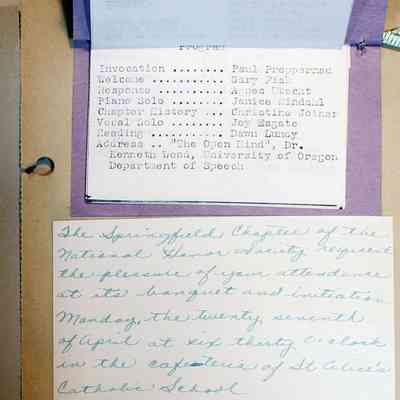 Program
Invocation ........ Paul
Welcome ........... Gary Fish
Response .......... Agnes
Piano Solo ........ Janice
Chapter History ... Christine Joiner
Vocal Solo ........ Joy Esgate
Reading ........... Dawn
Address .. "The Open Mind", Dr.
Kenneth Wood, University of Oregon
Department of Speech
The Springfield Chapter of the
National Honor Society request
the pleasure of your attendence
at its banquet and initiation
Monday, the twenty, seventh
of April at six thirty O'clock
in the cafeteria of St Alice's
Catholic School